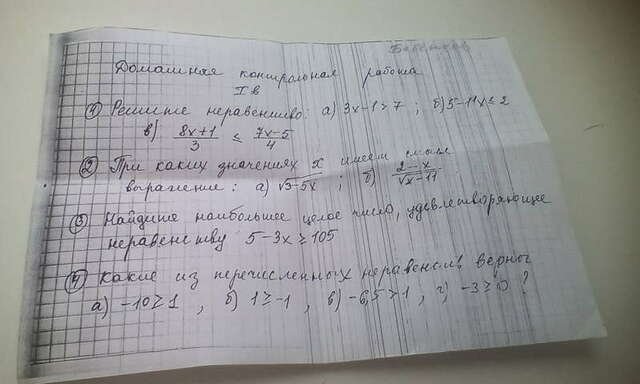 Домашная контрольная работа
I в
① Решите неравенство: а) 3x-1>7 ; б) 5-11x≤2
в) (8x+1)/3 ≤ (7x-5)/4
② При каких значениях x имеет смысл
выражение: а) √3-5x ; б) (2-x)/√x-11
③ Найдите наибольшее целое число, удовлетворяющее
неравенству 5-3x≥105
④ Какие из перечисленных неравенств верны
а) -10≥1 , б) 1≥-1 , в) -6,5>1 , г) -3≥0 ?